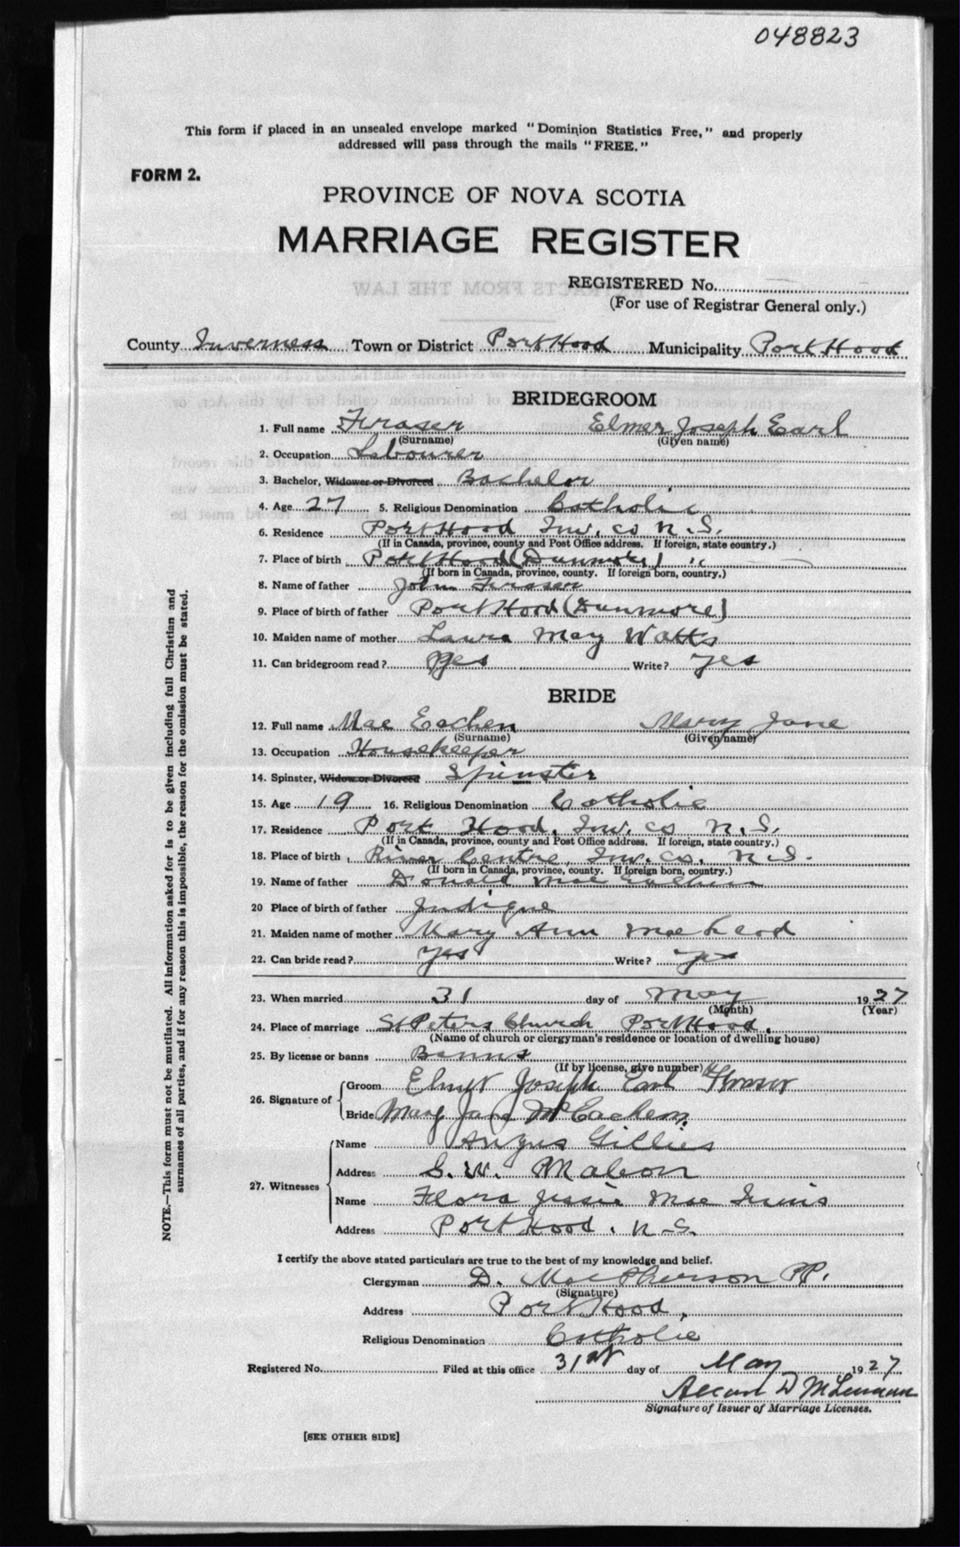 048823
This form if placed in an unsealed envelope marked "Dominion Statistics Free," and properly
addressed will pass through the mails "FREE."
FORM 2.
PROVINCE OF NOVA SCOTIA
MARRIAGE REGISTER
REGISTERED No.
(For use of Registrar General only.)
County Inverness Town or District Port Hood Municipality Port Hood
BRIDEGROOM
1. Full name Fraser Elmer Joseph Earl
(Surname) (Given name)
2. Occupation Labourer
3. Bachelor, Widower or Divorced Bachelor
4. Age 27 5. Religious Denomination Catholic
6. Residence Port Hood Inv. Co N.S.
(If in Canada, province, county and Post Office address. If foreign, state country.)
7. Place of birth Port Hood (Dunmore) " "
(If born in Canada, province, county. If foreign born, country.)
8. Name of father John Fraser
9. Place of birth of father Port Hood (Dunmore)
10. Maiden name of mother Laura May Watts
11. Can bridegroom read? Yes Write? yes
BRIDE
12. Full name Mac Eachen Mary Jane
(Surname) (Given name)
13. Occupation Housekeeper
14. Spinster, Widow or Divorced Spinster
15. Age 19 16. Religious Denomination Catholic
17. Residence Port Hood, Inv. Co N.S.
(If in Canada, province, county and Post Office address. If foreign, state country.)
18. Place of birth River Centre, Inv. Co. N.S.
(If born in Canada, province, county. If foreign born, country.)
19. Name of father Donald Mac Eachen
20 Place of birth of father Judique
21. Maiden name of mother Mary Ann Mac Leod
22. Can bride read? Yes Write? yes
23. When married 31 day of May 1927
(Month) (Year)
24. Place of marriage St Peters Church Port Hood.
(Name of church or clergyman's residence or location of dwelling house)
25. By license or banns Banns
(If by license, give number)
26. Signature of
Groom Elmer Joseph Earl Fraser
Bride Mary Jane McEachern
27. Witnesses
Name Angus Gillies
Address S. W. Mabou
Name Flora Jessie Mac Innis
Address Port Hood, N.S.
I certify the above stated particulars are true to the best of my knowledge and belief.
Clergyman D. MacPherson PP.
(Signature)
Address Port Hood,
Religious Denomination Catholic
Registered No. Filed at this office 31st day of May 1927
D
Signature of Issuer of Marriage Licenses.
[SEE OTHER SIDE]
NOTE.—This form must not be mutilated. All information asked for is to be given including full Christian and
surnames of all parties, and if for any reason this is impossible, the reason for the omission must be stated.